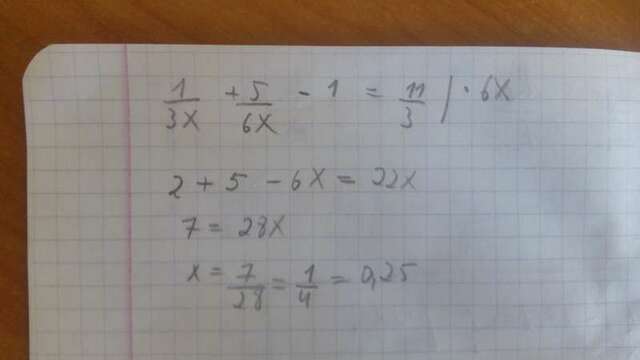 1/3X + 5/6X - 1 = 11/3 | · 6X
2 + 5 - 6X = 22X
7 = 28X
x = 7/28 = 1/4 = 0,25